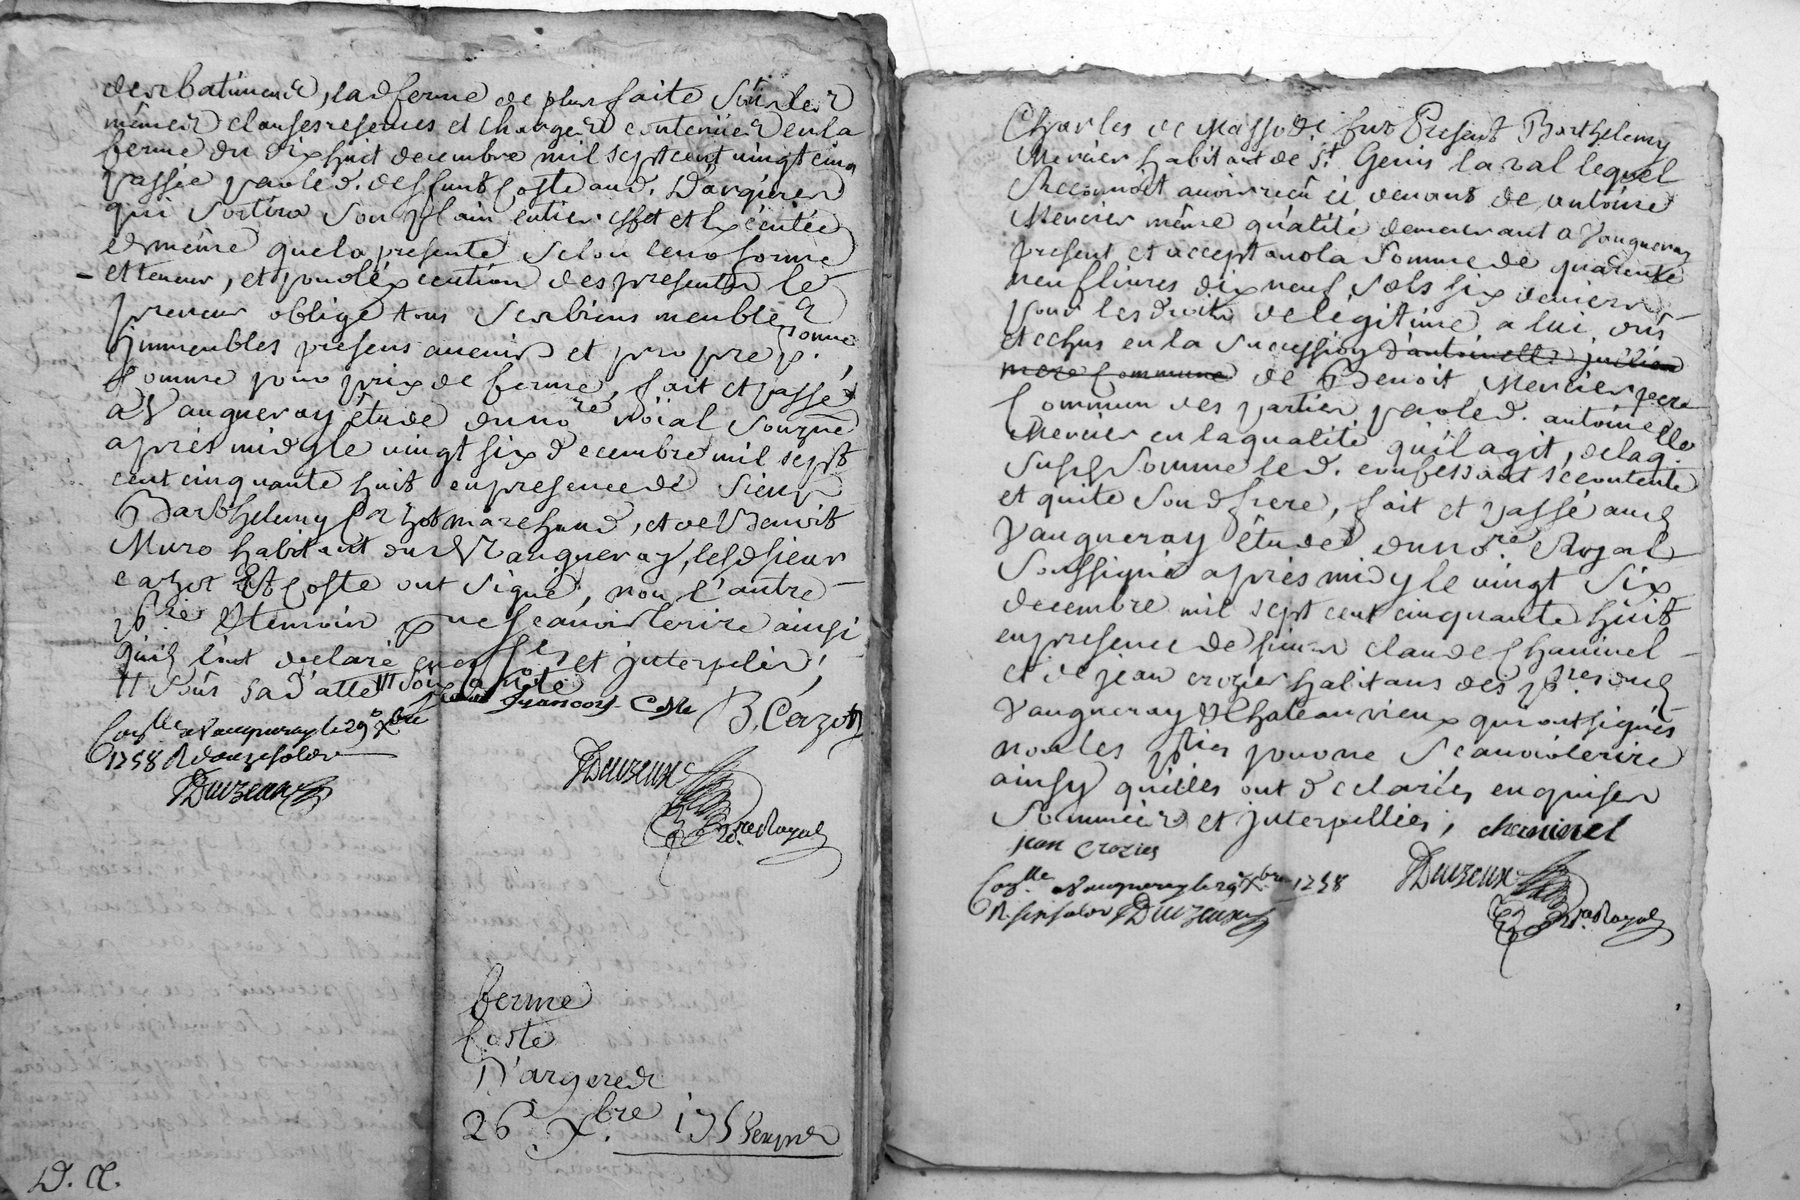 des batimens, lad. ferme de plus faite sous les
mêmes clauses reserves et charges contenües en la
ferme du dix huit decembre mil sept cent vingt cinq
passée par led. deffunt Coste aud. Dargires
qui sortira son plain entier effet et exécutée
de même que la presente selon leur forme
et teneur, et pour léxécution des presentes le
preneur oblige tous ses biens meubles
immeubles presens avenir et propre personne
comme pour prix de ferme, fait et passé
a Vaugneray étude du no.re roïal souzné
après midy le vingt six decembre mil sept
cent cinquante huit en presence de sieur
Barthelemy Cazot marchand, et de Benoit
Muro habitant dud. Vaugneray, lesd. sieur
cazot et Coste ont signé, non l'autre
temoin pour ne sçavoir écrire ainsi
quil l'a declaré enquis et interpelé,
francois Coste B. Cazot
Con.lle a Vaugneray le 29e Xbre
1758 R. douze sols
Duizeux
Duizeux
No.re Royal
ferme
Coste
D'argires
26e Xbre 1758
D. A.
Charles de Masso &c. fut Present Barthelemy
Mercier habitant de St. Genis laval lequel
Reconnoit avoir reçû ci devant de antoine
Mercier même qualité demeurant a Vaugneray
present et acceptant la somme de quarente
neuf livres dix neuf sols six deniers
pour les droits de légitime a lui dûs
et echus en la succession d'antoinette julien
mere Commune de Benoit Mercier pere
Commun des parties par led. antoine
Mercier en la qualité qu'il agit, de laq.lle
susd. somme le d. confessant se contente
et quite sond. frere, fait et passé aud.
Vaugneray étude du no.re Royal
Soussigné après midy le vingt six
decembre mil sept cent cinquante huit
en presence de sieur claude Chaninel
et de jean crozier habitans des p.res dud.
Vaugneray & Chateauvieux qui ont signés
non les p.ties pour ne sçavoir ecrire
ainsy qu'elles ont declarées enquises
Sommées et interpellées, chaninel
jean Crozier
Con.lle a Vaugneray le 29e Xbre 1758
R. six sols Duizeux
Duizeux
No.re Royal